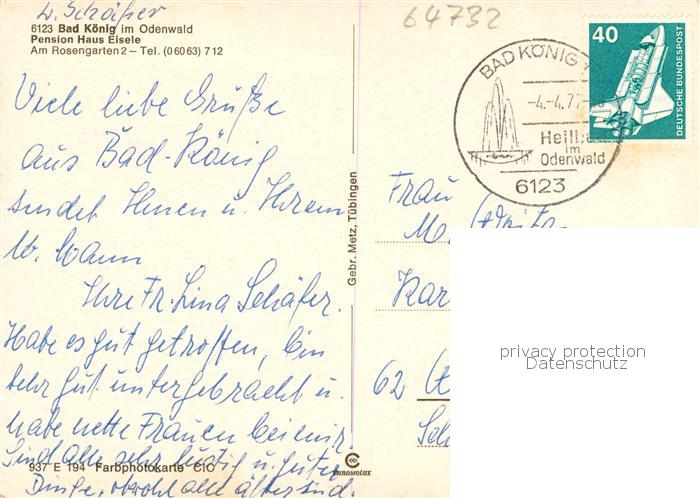 L. Schäfer
6123 Bad König im Odenwald
Pension Haus Eisele
Am Rosengarten 2 – Tel. (06063) 712
Viele liebe Grüße
aus Bad-König
sendet Ihnen u. Ihrem
lb. Mann
Ihre Fr. Lina Schäfer.
Habe es gut getroffen, bin
sehr gut untergebracht u.
habe nette Frauen bei mir.
Sind alle sehr lustig u. guter
Dinge, obwohl alle älter sind.
937 E 194 Farbphotokarte CIC
Gebr. Metz, Tübingen
64732
BAD KÖNIG
-4.-4.77
Heilb
im
Odenwald
6123
40
DEUTSCHE BUNDESPOST
Frau
M.
Kar
62
Sch
privacy protection
Datenschutz